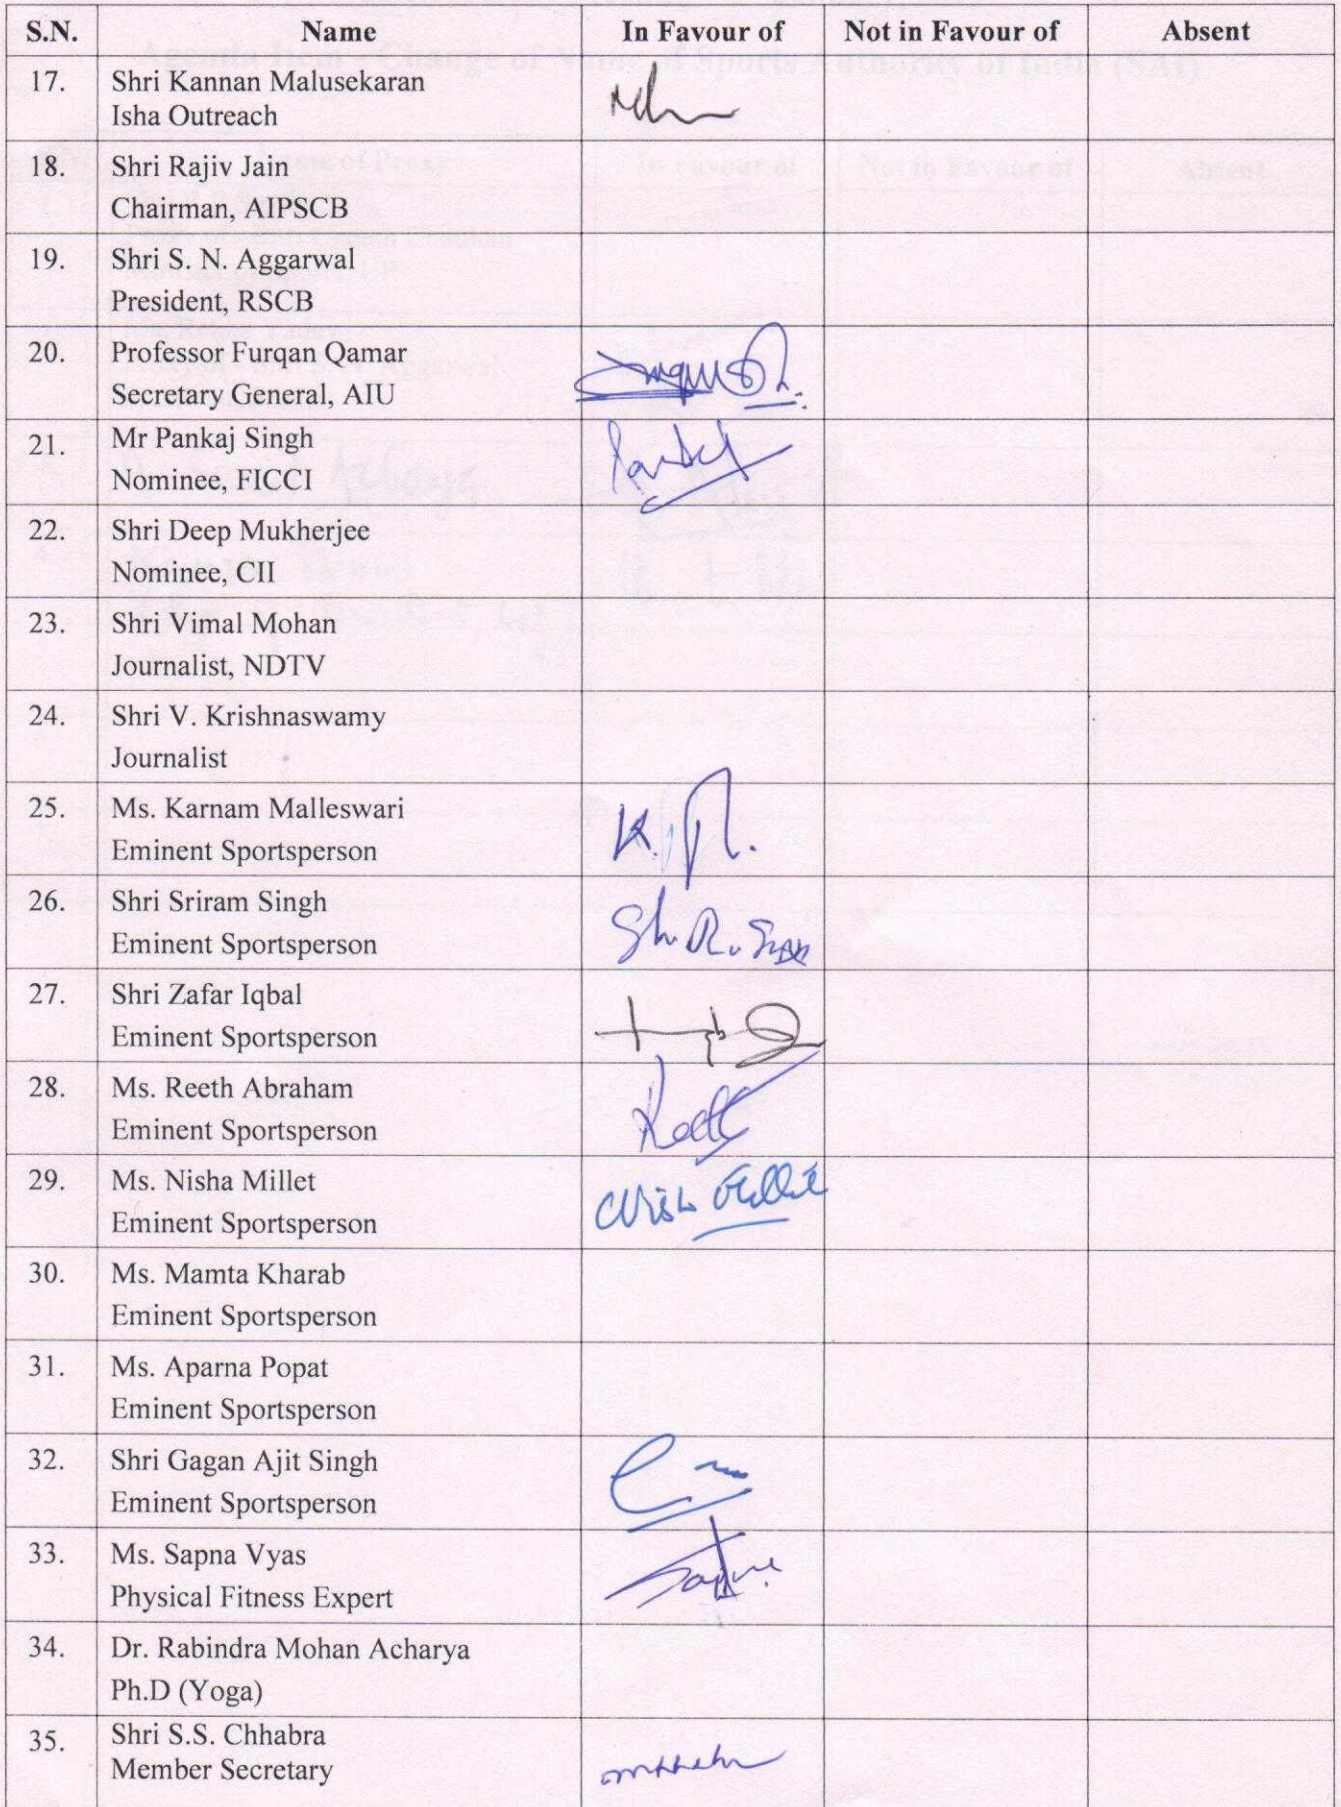 S.N. Name In Favour of Not in Favour of Absent
17. Shri Kannan Malusekaran
Isha Outreach
18. Shri Rajiv Jain
Chairman, AIPSCB
19. Shri S. N. Aggarwal
President, RSCB
20. Professor Furqan Qamar
Secretary General, AIU
21. Mr Pankaj Singh
Nominee, FICCI
22. Shri Deep Mukherjee
Nominee, CII
23. Shri Vimal Mohan
Journalist, NDTV
24. Shri V. Krishnaswamy
Journalist
25. Ms. Karnam Malleswari
Eminent Sportsperson
26. Shri Sriram Singh
Eminent Sportsperson
27. Shri Zafar Iqbal
Eminent Sportsperson
28. Ms. Reeth Abraham
Eminent Sportsperson
29. Ms. Nisha Millet
Eminent Sportsperson
30. Ms. Mamta Kharab
Eminent Sportsperson
31. Ms. Aparna Popat
Eminent Sportsperson
32. Shri Gagan Ajit Singh
Eminent Sportsperson
33. Ms. Sapna Vyas
Physical Fitness Expert
34. Dr. Rabindra Mohan Acharya
Ph.D (Yoga)
35. Shri S.S. Chhabra
Member Secretary